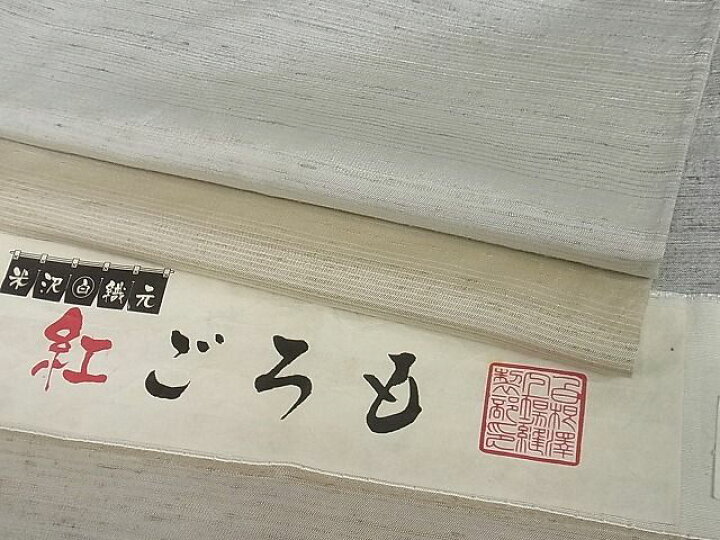 米沢白織元
紅ごろも